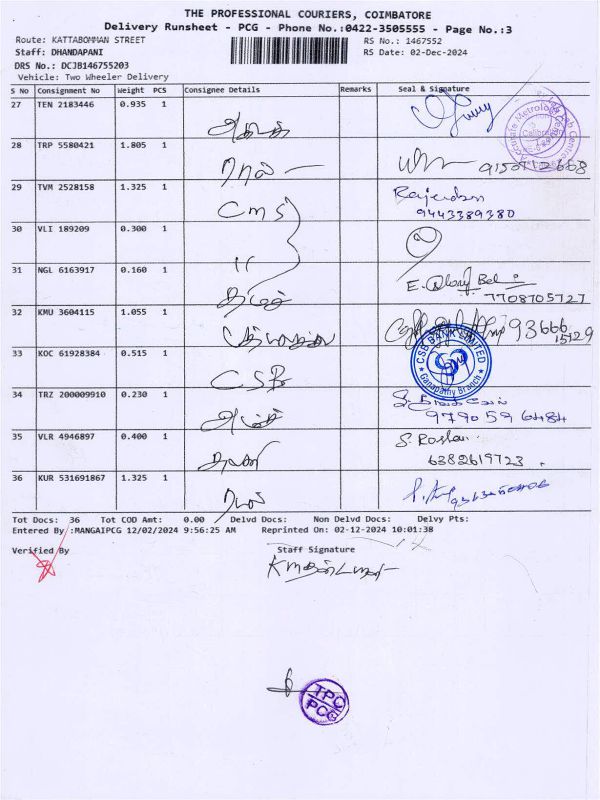 THE PROFESSIONAL COURIERS, COIMBATORE
Delivery Runsheet - PCG - Phone No.:0422-3505555 - Page No.:3
Route: KATTABOMMAN STREET
RS No.: 1467552
Staff: DHANDAPANI
RS Date: 02-Dec-2024
DRS No.: DCJB146755203
Vehicle: Two Wheeler Delivery
S No Consignment No Weight PCS Consignee Details Remarks Seal & Signature
27 TEN 2183446 0.935 1
28 TRP 5580421 1.805 1
29 TVM 2528158 1.325 1 CMS Rajendran
9443389380
30 VLI 189209 0.300 1 "
31 NGL 6163917 0.160 1
7708705727
32 KMU 3604115 1.055 1 93666
15129
33 KOC 61928384 0.515 1 CSB CSB BANK LIMITED
Ganapathy Branch
34 TRZ 200009910 0.230 1
9790596484
35 VLR 4946897 0.400 1 S. Roshan
6382619723
36 KUR 531691867 1.325 1
Tot Docs: 36 Tot COD Amt: 0.00 Delvd Docs: Non Delvd Docs: Delvy Pts:
Entered By :MANGAIPCG 12/02/2024 9:56:25 AM Reprinted On: 02-12-2024 10:01:38
Verified By Staff Signature
TPC
PCG